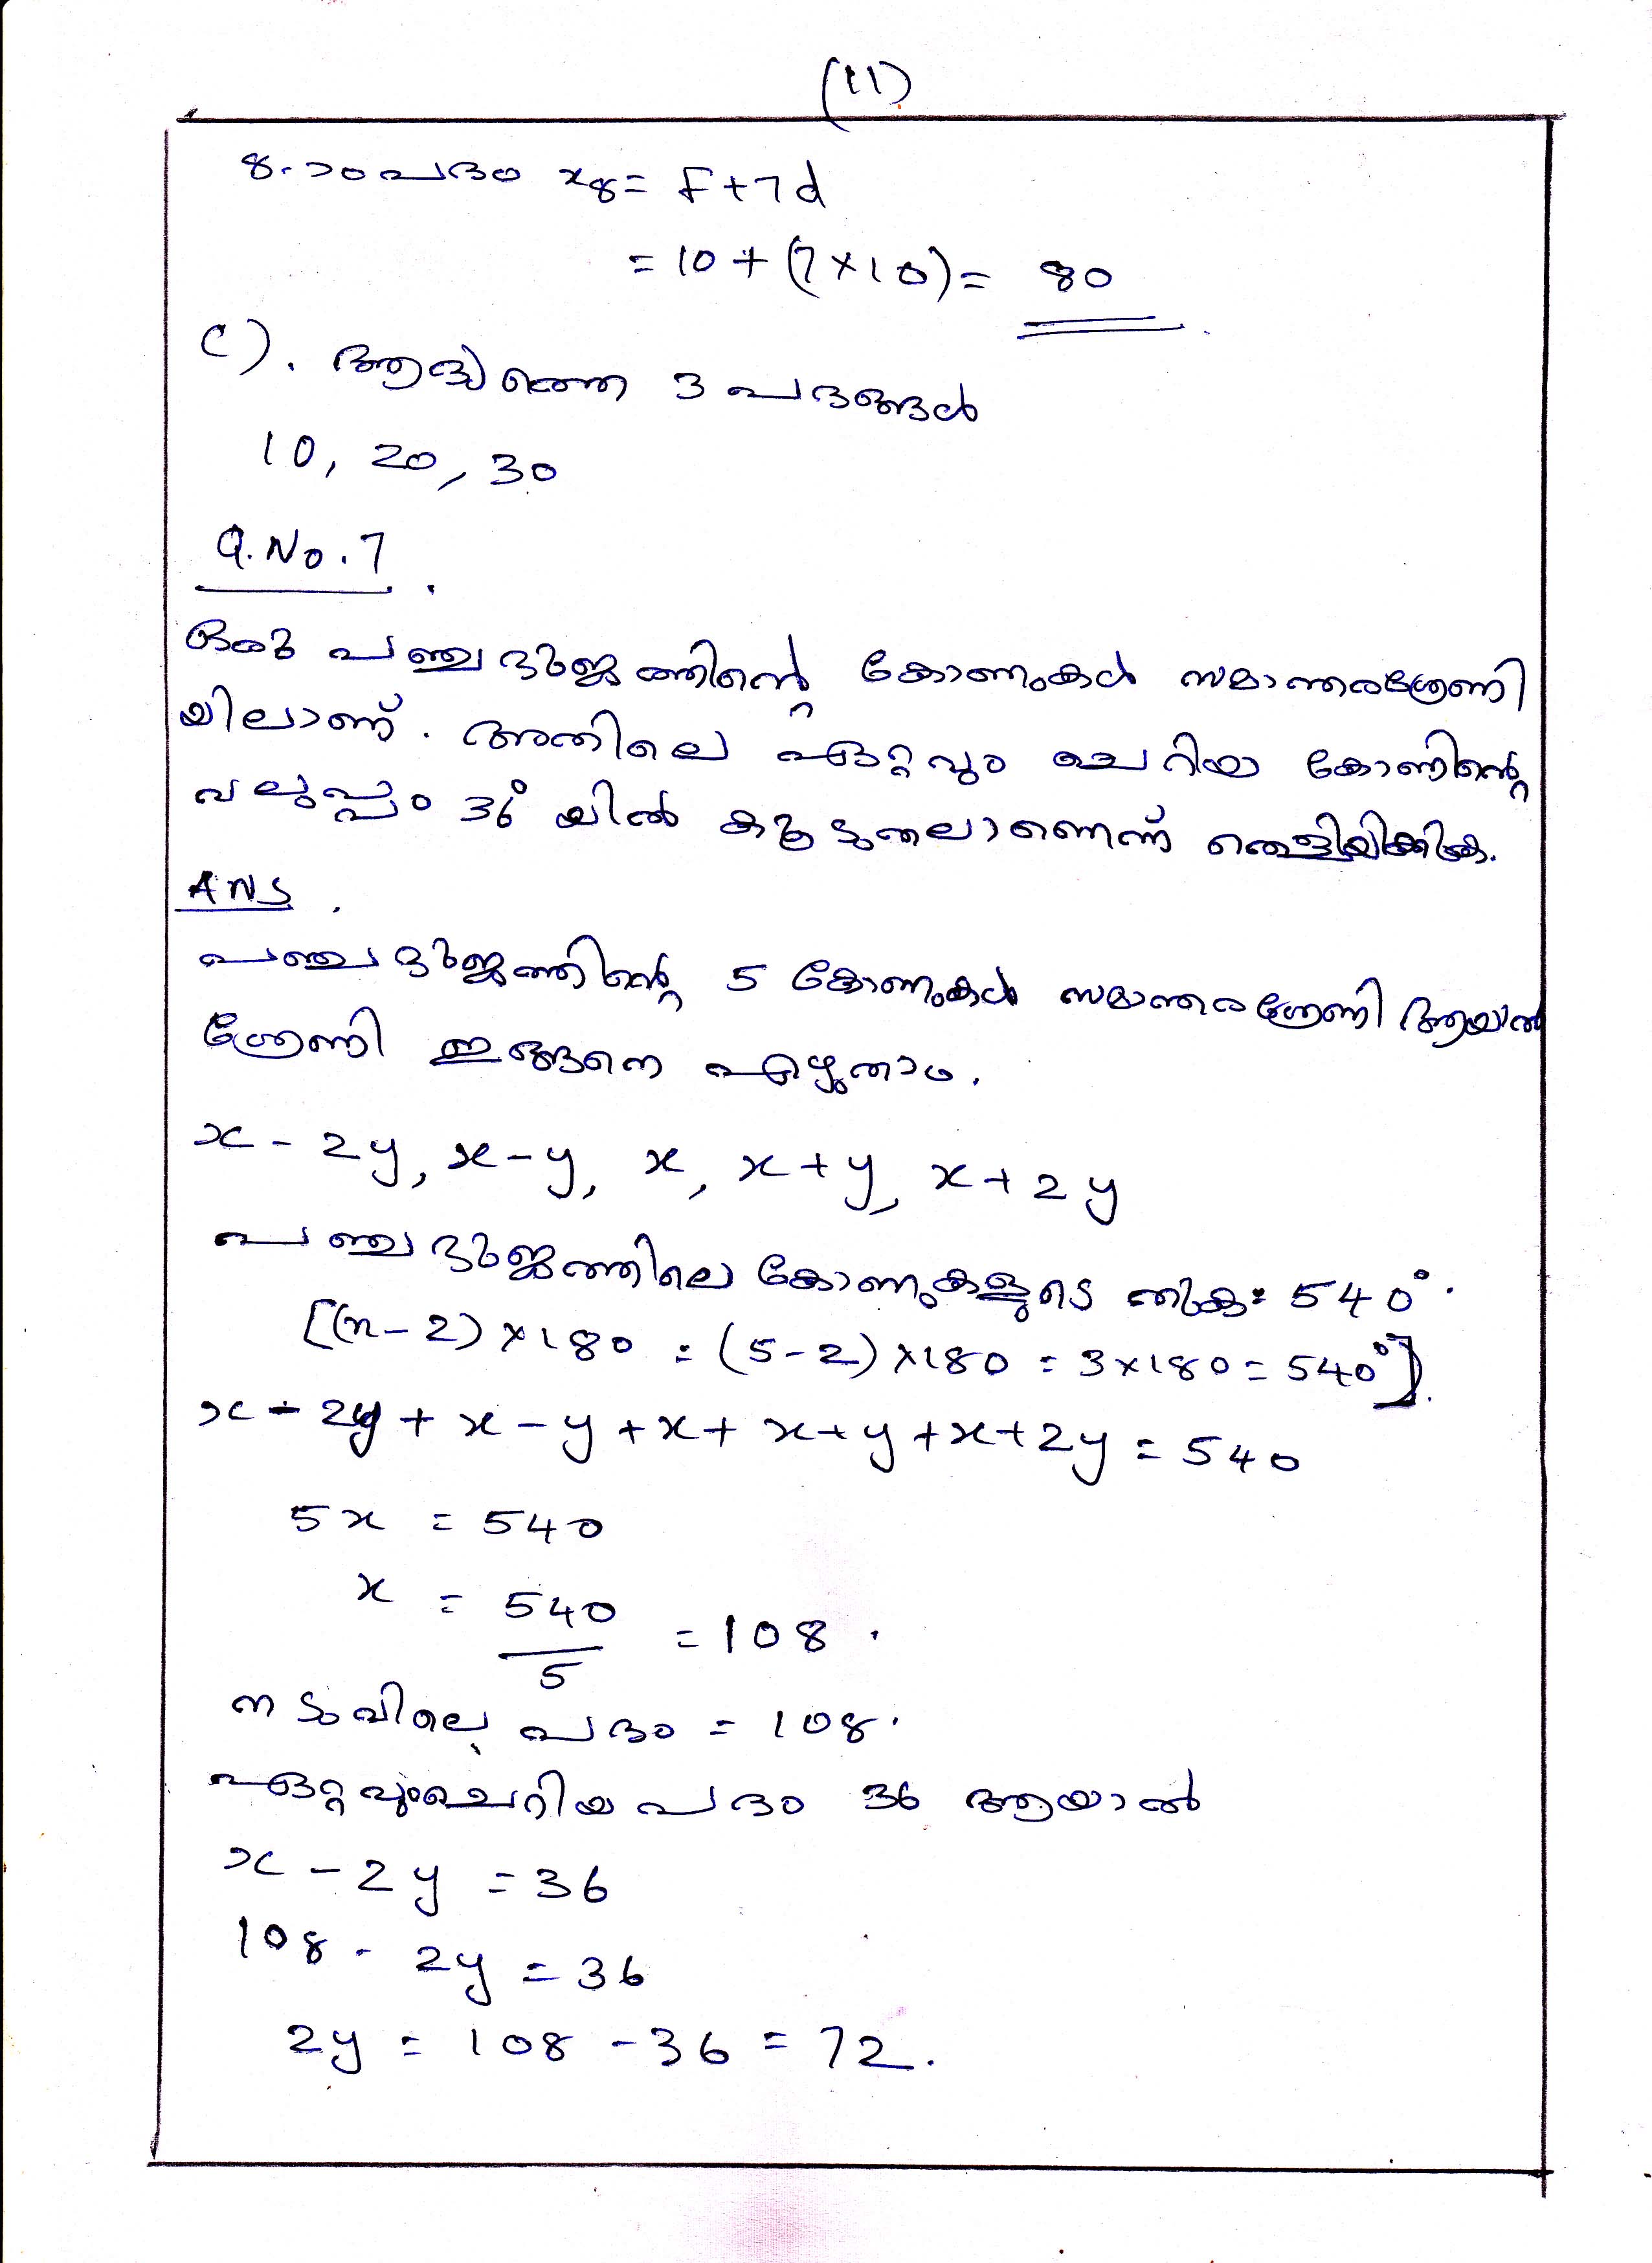 (11)
8-ാം പദം x8 = f+7d
= 10 + (7×10) = 80
C). ആദ്യത്തെ 3 പദങ്ങൾ
10, 20, 30
Q.No.7.
ഒരു പഞ്ചഭുജത്തിന്റെ കോണുകൾ സമാന്തരശ്രേണി
യിലാണ്. അതിലെ ഏറ്റവും ചെറിയ കോണിന്റെ
വലുപ്പം 36° യിൽ കൂടുതലാണെന്ന് തെളിയിക്കുക.
ANS.
പഞ്ചഭുജത്തിന്റെ 5 കോണുകൾ സമാന്തരശ്രേണി ആയാൽ
ശ്രേണി ഇങ്ങനെ എഴുതാം.
x - 2y, x-y, x, x+y, x+2y
പഞ്ചഭുജത്തിലെ കോണുകളുടെ തുക = 540°.
[(n-2)×180 = (5-2)×180 = 3×180 = 540°].
x - 2y + x - y + x + x+y + x+2y = 540
5x = 540
x = 540/5 = 108.
നടുവിലെ പദം = 108.
ഏറ്റവുംചെറിയ പദം 36 ആയാൽ
x - 2y = 36
108 - 2y = 36
2y = 108 - 36 = 72.